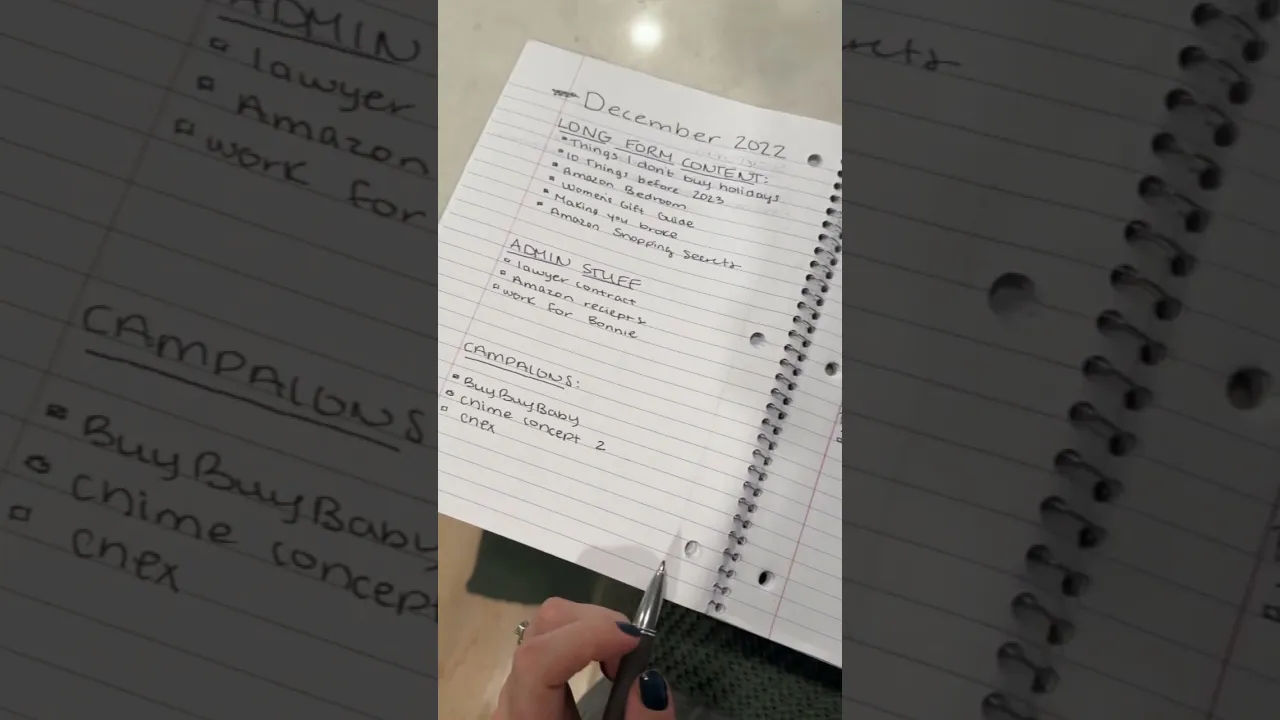 December 2022
LONG FORM CONTENT:
Things I don't buy holidays
10 Things before 2023
Amazon Bedroom
Women's Gift Guide
Making you broke
Amazon Shopping secrets
ADMIN STUFF
lawyer contract
Amazon reciepts
work for Bonnie
CAMPAIGNS:
BuyBuyBaby
chime concept 2
cnex